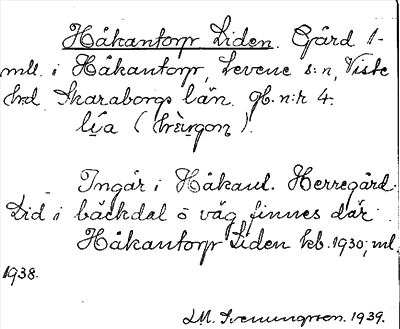 Håkantorp Liden. Gård 1-
mtl. i Håkantorp, Levene s:n, Viste
hd. Skaraborgs län. gb. n:r 4.
li̱a (hå̱ŋon).
Ingår i Håkant. Herregård.
Lid i bäckdal ö väg finnes där.
Håkantorp Liden kb. 1930; ml.
1938.
I.M. Svenungsson. 1939.